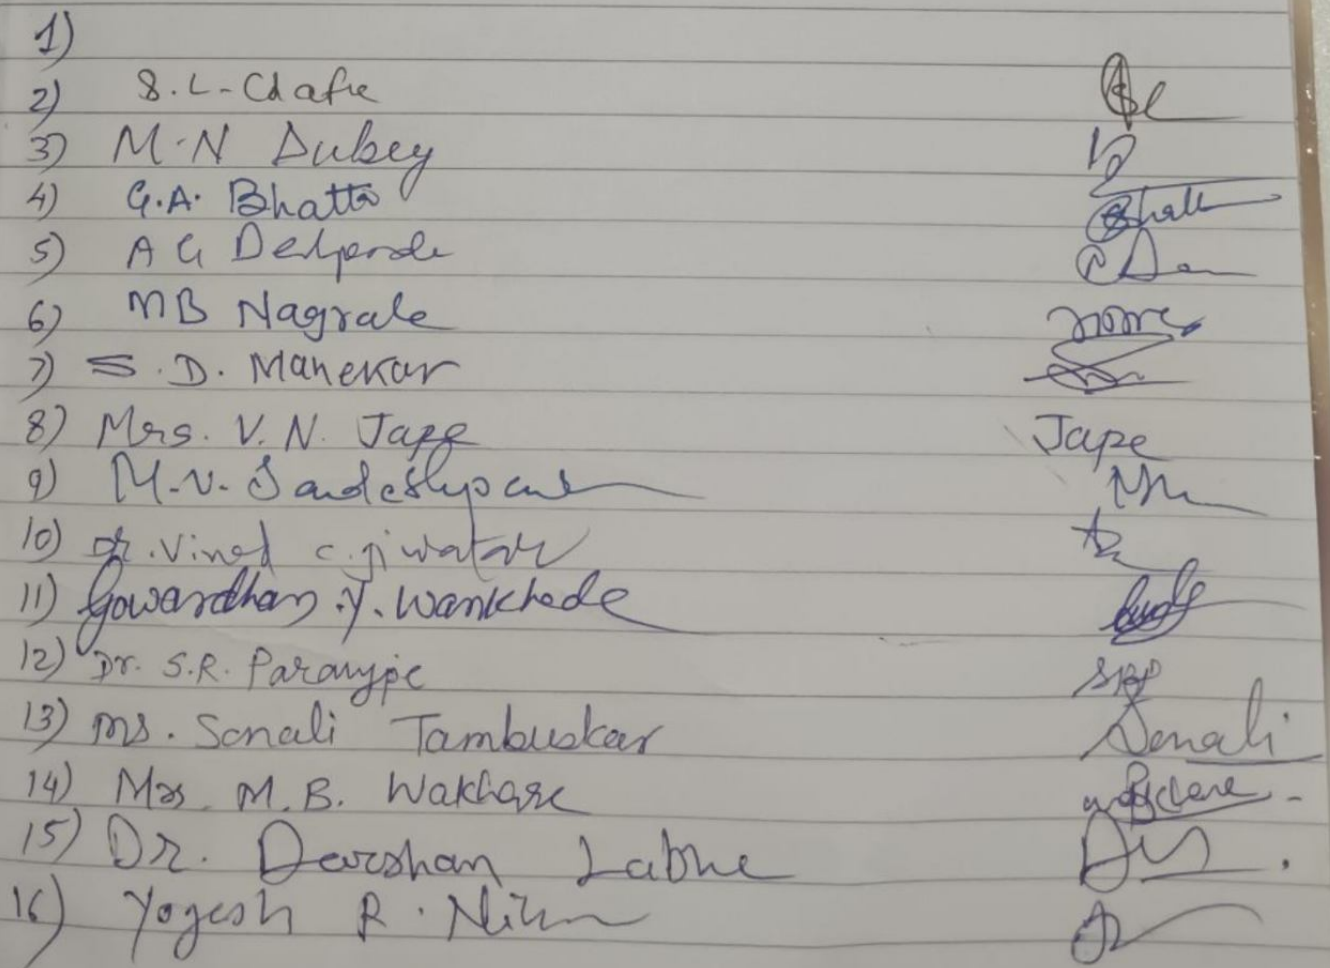 1)
2) S. L. Chafle
3) M. N Dubey
4) G. A. Bhatta
5) A G Deshpande
6) MB Nagrale
7) S. D. Manekar
8) Mrs. V. N. Jape Jape
9) M. V. Sandeshpande
10) Dr. Vinod C. Jiwatar
11) Gowardhan. Y. Wankhede
12) Dr. S.R. Paranjpe SRP
13) Ms. Sonali Tambuskar Sonali
14) Mrs. M. B. Wakhare
15) Dr. Darshan Labhe
16) Yogesh R.